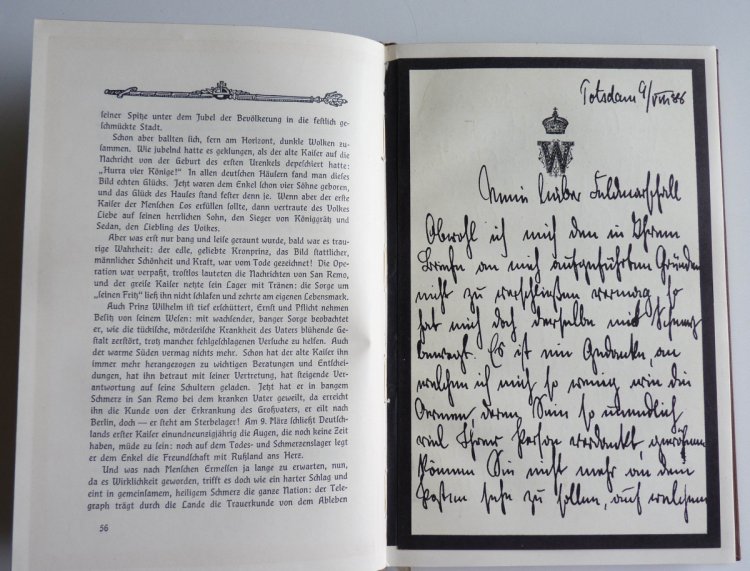 seiner Spitze unter dem Jubel der Bevölkerung in die festlich ge-
schmückte Stadt.
Schon aber ballten sich, fern am Horizont, dunkle Wolken zu-
sammen. Wie jubelnd hatte es geklungen, als der alte Kaiser auf die
Nachricht von der Geburt des ersten Urenkels depeschiert hatte:
„Hurra vier Könige!“ In allen deutschen Häusern fand man dieses
Bild echten Glücks. Jetzt waren dem Enkel schon vier Söhne geboren,
und das Glück des Hauses stand fester denn je. Wenn aber der erste
Kaiser der Menschen Los erfüllen sollte, dann vertraute des Volkes
Liebe auf seinen herrlichen Sohn, den Sieger von Königgrätz und
Sedan, den Liebling des Volkes.
Aber was erst nur bang und leise geraunt wurde, bald war es trau-
rige Wahrheit: der edle, geliebte Kronprinz, das Bild stattlicher,
männlicher Schönheit und Kraft, war vom Tode gezeichnet! Die Ope-
ration war verpaßt, trostlos lauteten die Nachrichten von San Remo,
und der greise Kaiser netzte sein Lager mit Tränen; die Sorge um
„seinen Fritz“ ließ ihn nicht schlafen und zehrte am eigenen Lebensmark.
Auch Prinz Wilhelm ist tief erschüttert, Ernst und Pflicht nehmen
Besitz von seinem Wesen: mit wachsender, banger Sorge beobachtet
er, wie die tückische, mörderische Krankheit des Vaters blühende Ge-
stalt zerstört, trotz mancher fehlgeschlagenen Versuche zu helfen. Auch
der warme Süden vermag nichts mehr. Schon hat der alte Kaiser ihn
immer mehr herangezogen zu wichtigen Beratungen und Entschei-
dungen, hat ihn betraut mit seiner Vertretung, hat steigende Ver-
antwortung auf seine Schultern geladen. Jetzt hat er in bangem
Schmerz in San Remo bei dem kranken Vater geweilt, da erreicht
ihn die Kunde von der Erkrankung des Großvaters, er eilt nach
Berlin, doch — er steht am Sterbelager! Am 9. März schließt Deutsch-
lands erster Kaiser einundneunzigjährig die Augen, die noch keine Zeit
haben, müde zu sein: noch auf dem Todes- und Schmerzenslager legt
er dem Enkel die Freundschaft mit Rußland ans Herz.
Und was nach Menschen Ermessen ja lange zu erwarten, nun,
da es Wirklichkeit geworden, trifft es doch wie ein harter Schlag und
eint in gemeinsamem, heiligem Schmerz die ganze Nation: der Tele-
graph trägt durch die Lande die Trauerkunde von dem Ableben
56
Potsdam 9/VIII 88
W
Mein lieber Feldmarschall
Obwohl ich mich den in Ihrem
Briefe an mich aufgeführten Gründen
nicht zu verschließen vermag, so
hat mich doch derselbe mit Schmerz
bewegt. Es ist ein Gedanke, an
welchen ich mich so wenig wie die
Armee, deren Sein so unendlich
viel Ihrer Person verdankt, gewöhnen
können Sie nicht mehr an dem
Posten sehn zu sollen, auf welchem